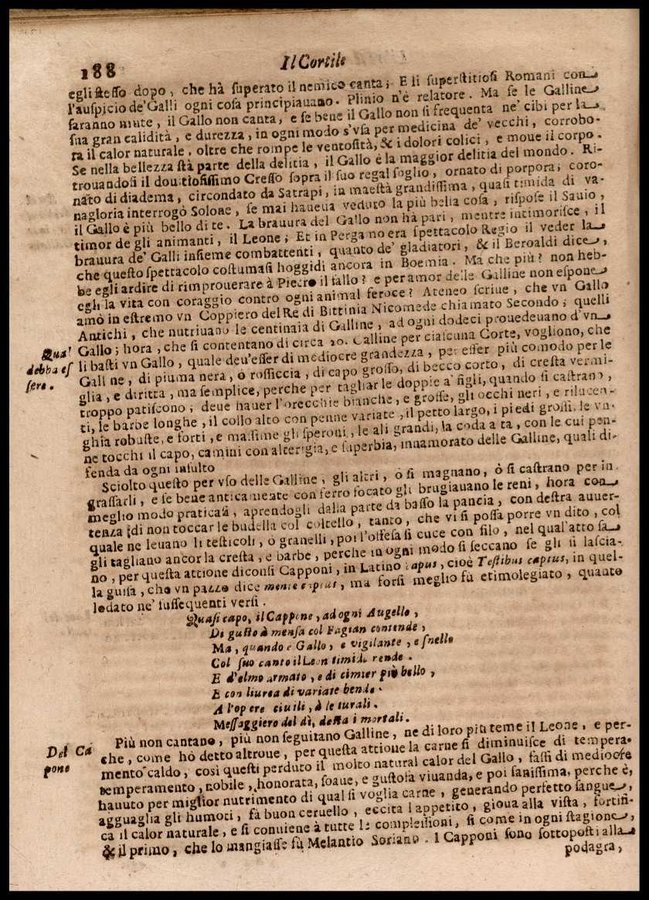 188
Il Cortile
egli stesso dopo, che hà superato il nemico canta; E li superstitiosi Romani con
l'auspicio de' Galli ogni cosa principiauano. Plinio n'è relatore. Ma se le Galline
saranno mute, il Gallo non canta, e se bene il Gallo non si frequenta ne' cibi per la
sua gran calidità, e durezza, in ogni modo s'vsa per medicina de' vecchi, corrobo-
ra il calor naturale, oltre che rompe le ventosità, & i dolori colici, e moue il corpo.
Se nella bellezza stà parte della delitia, il Gallo è la maggior delitia del mondo. Ri-
trouandosi il douitiosissimo Cresso sopra il suo regal soglio, ornato di porpora; coro-
nato di diadema, circondato da Satrapi, in maestà grandissima, quasi timida di va-
nagloria interrogò Solone, se mai haueua veduto la più bella cosa, rispose il Sauio,
il Gallo è più bello di te. La brauura del Gallo non hà pari, mentre intimorisce, il
timor de gli animanti, il Leone; Et in Pergamo era spettacolo Regio il veder la
brauura de' Galli insieme combattenti, quanto de' gladiatori, & il Beroaldi dice,
che questo spettacolo costumasi hoggidi ancora in Boemia. Ma che più? non heb-
be egli ardire di rimprouerare à Pietro il fallo? e per amor delle Galline non espone
egli la vita con coraggio contro ogni animal feroce? Ateneo scriue, che vn Gallo
amò in estremo vn Coppiero del Rè di Bittinia Nicomede chiamato Secondo; quelli
Antichi, che nutriuano le centinaia di Galline, ad ogni dodeci prouedeuano d'vn
Gallo; hora, che si contentano di circa 20. Galline per ciascuna Corte, vogliono, che
li basti vn Gallo, quale deu'esser di mediocre grandezza, per esser più comodo per le
Galline, di piuma nera, ò rossiccia, di capo grosso, di becco corto, di cresta vermi-
glia, e diritta, ma semplice, perche per tagliar le doppie a' figli, quando si castrano,
troppo patiscono; deue hauer l'orecchie bianche, e grosse, gli occhi neri, e rilucen-
ti, le barbe longhe, il collo alto con penne variate, il petto largo, i piedi grossi, le vn-
ghia robuste, e forti, e massime gli speroni, le ali grandi, la coda alta, con le cui pen-
ne tocchi il capo, camini con alterigia, e superbia, innamorato delle Galline, quali di-
fenda da ogni insulto
Qual
debba es
sere.
Sciolto questo per vso delle Galline, gli altri, ò si magnano, ò si castrano per in
grassarli, e se bene anticamente con ferro focato gli brugiauano le reni, hora con
meglio modo praticasi, aprendogli dalla parte da basso la pancia, con destra auuer-
tenza di non toccar le budella col coltello, tanto, che vi si possa porre vn dito, col
quale ne leuano li testicoli, ò granelli, poi l'offesa si cuce con filo, nel qual'atto
gli tagliano ancor la cresta, e barbe, perche in ogni modo si seccano se gli si lascia-
no, per questa attione diconsi Capponi, in Latino capus, cioè Testibus captus, in quel-
la guisa, che vn pazzo dice mente captus, ma forsi meglio fù etimolegiato, quanto
lodato ne' sussequenti versi.
Quasi capo, il Cappone, ad ogni Augello,
Di gusto à mensa col Fagian contende,
Ma, quando è Gallo, e vigilante, e snello
Col suo canto il Leon timido rende.
E d'elmo armato, e di cimier più bello,
E con liurea di variate bende.
A l'opere ciuili, à le rurali.
Messaggiero del dì, desta i mortali.
Del Ca
pone
Più non cantano, più non seguitano Galline, ne di loro più teme il Leone, e per-
che, come hò detto altroue, per questa attione la carne si diminuisce di tempera-
mento caldo, così questi perduto il molto natural calor del Gallo, fassi di mediocre
temperamento, nobile, honorata, soaue, e gustosa viuanda, e poi sanissima, perche è,
hauuto per miglior nutrimento di qual si voglia carne, generando perfetto sangue,
agguaglia gli humori, fà buon ceruello, eccita l'appetito, gioua alla vista, fortifi-
ca il calor naturale, e si conuiene à tutte le complessioni, si come in ogni stagione,
& il primo, che lo mangiasse fù Melantio Soriano. I Capponi sono sottoposti alla
podagra,